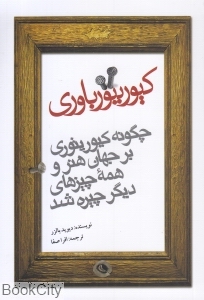 کیوریتورباوری
چگونه کیوریتوری
بر جهان هنر و
همهٔ چیزهای
دیگر چیره شد
نویسنده: دیوید بالزر
ترجمه: افرا صفا
BookCity